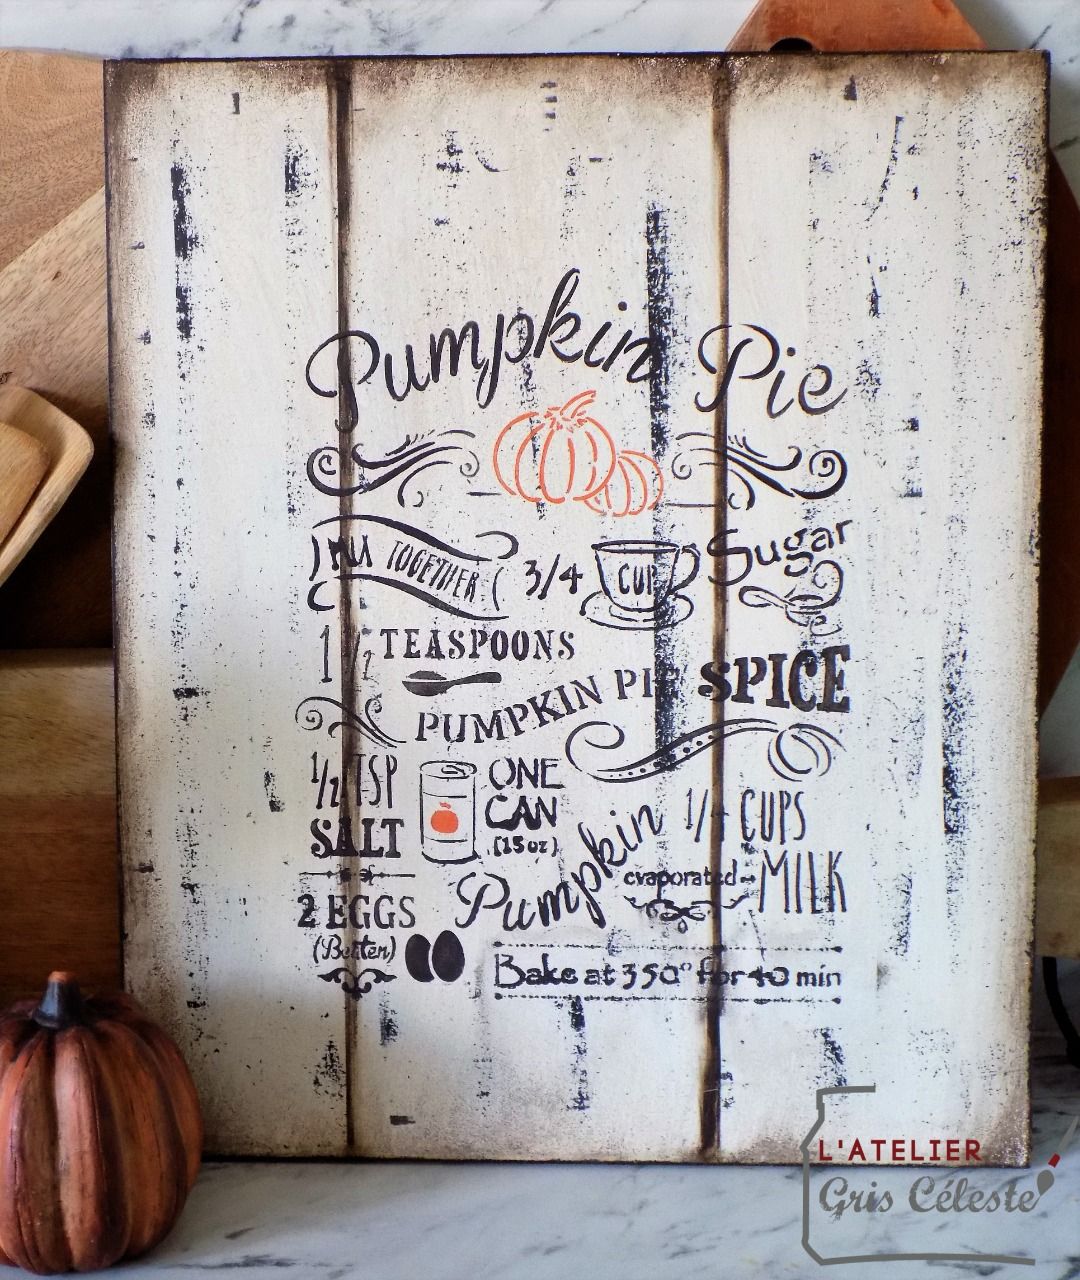 Pumpkin Pie
MIX TOGETHER
3/4 CUP Sugar
1 1/2 TEASPOONS
PUMPKIN PIE SPICE
1/2 TSP
SALT
ONE
CAN
(15 oz)
Pumpkin
CUPS
evaporated
MILK
2 EGGS
(Beaten)
Bake at 350° for 40 min
L'ATELIER
Gris Céleste